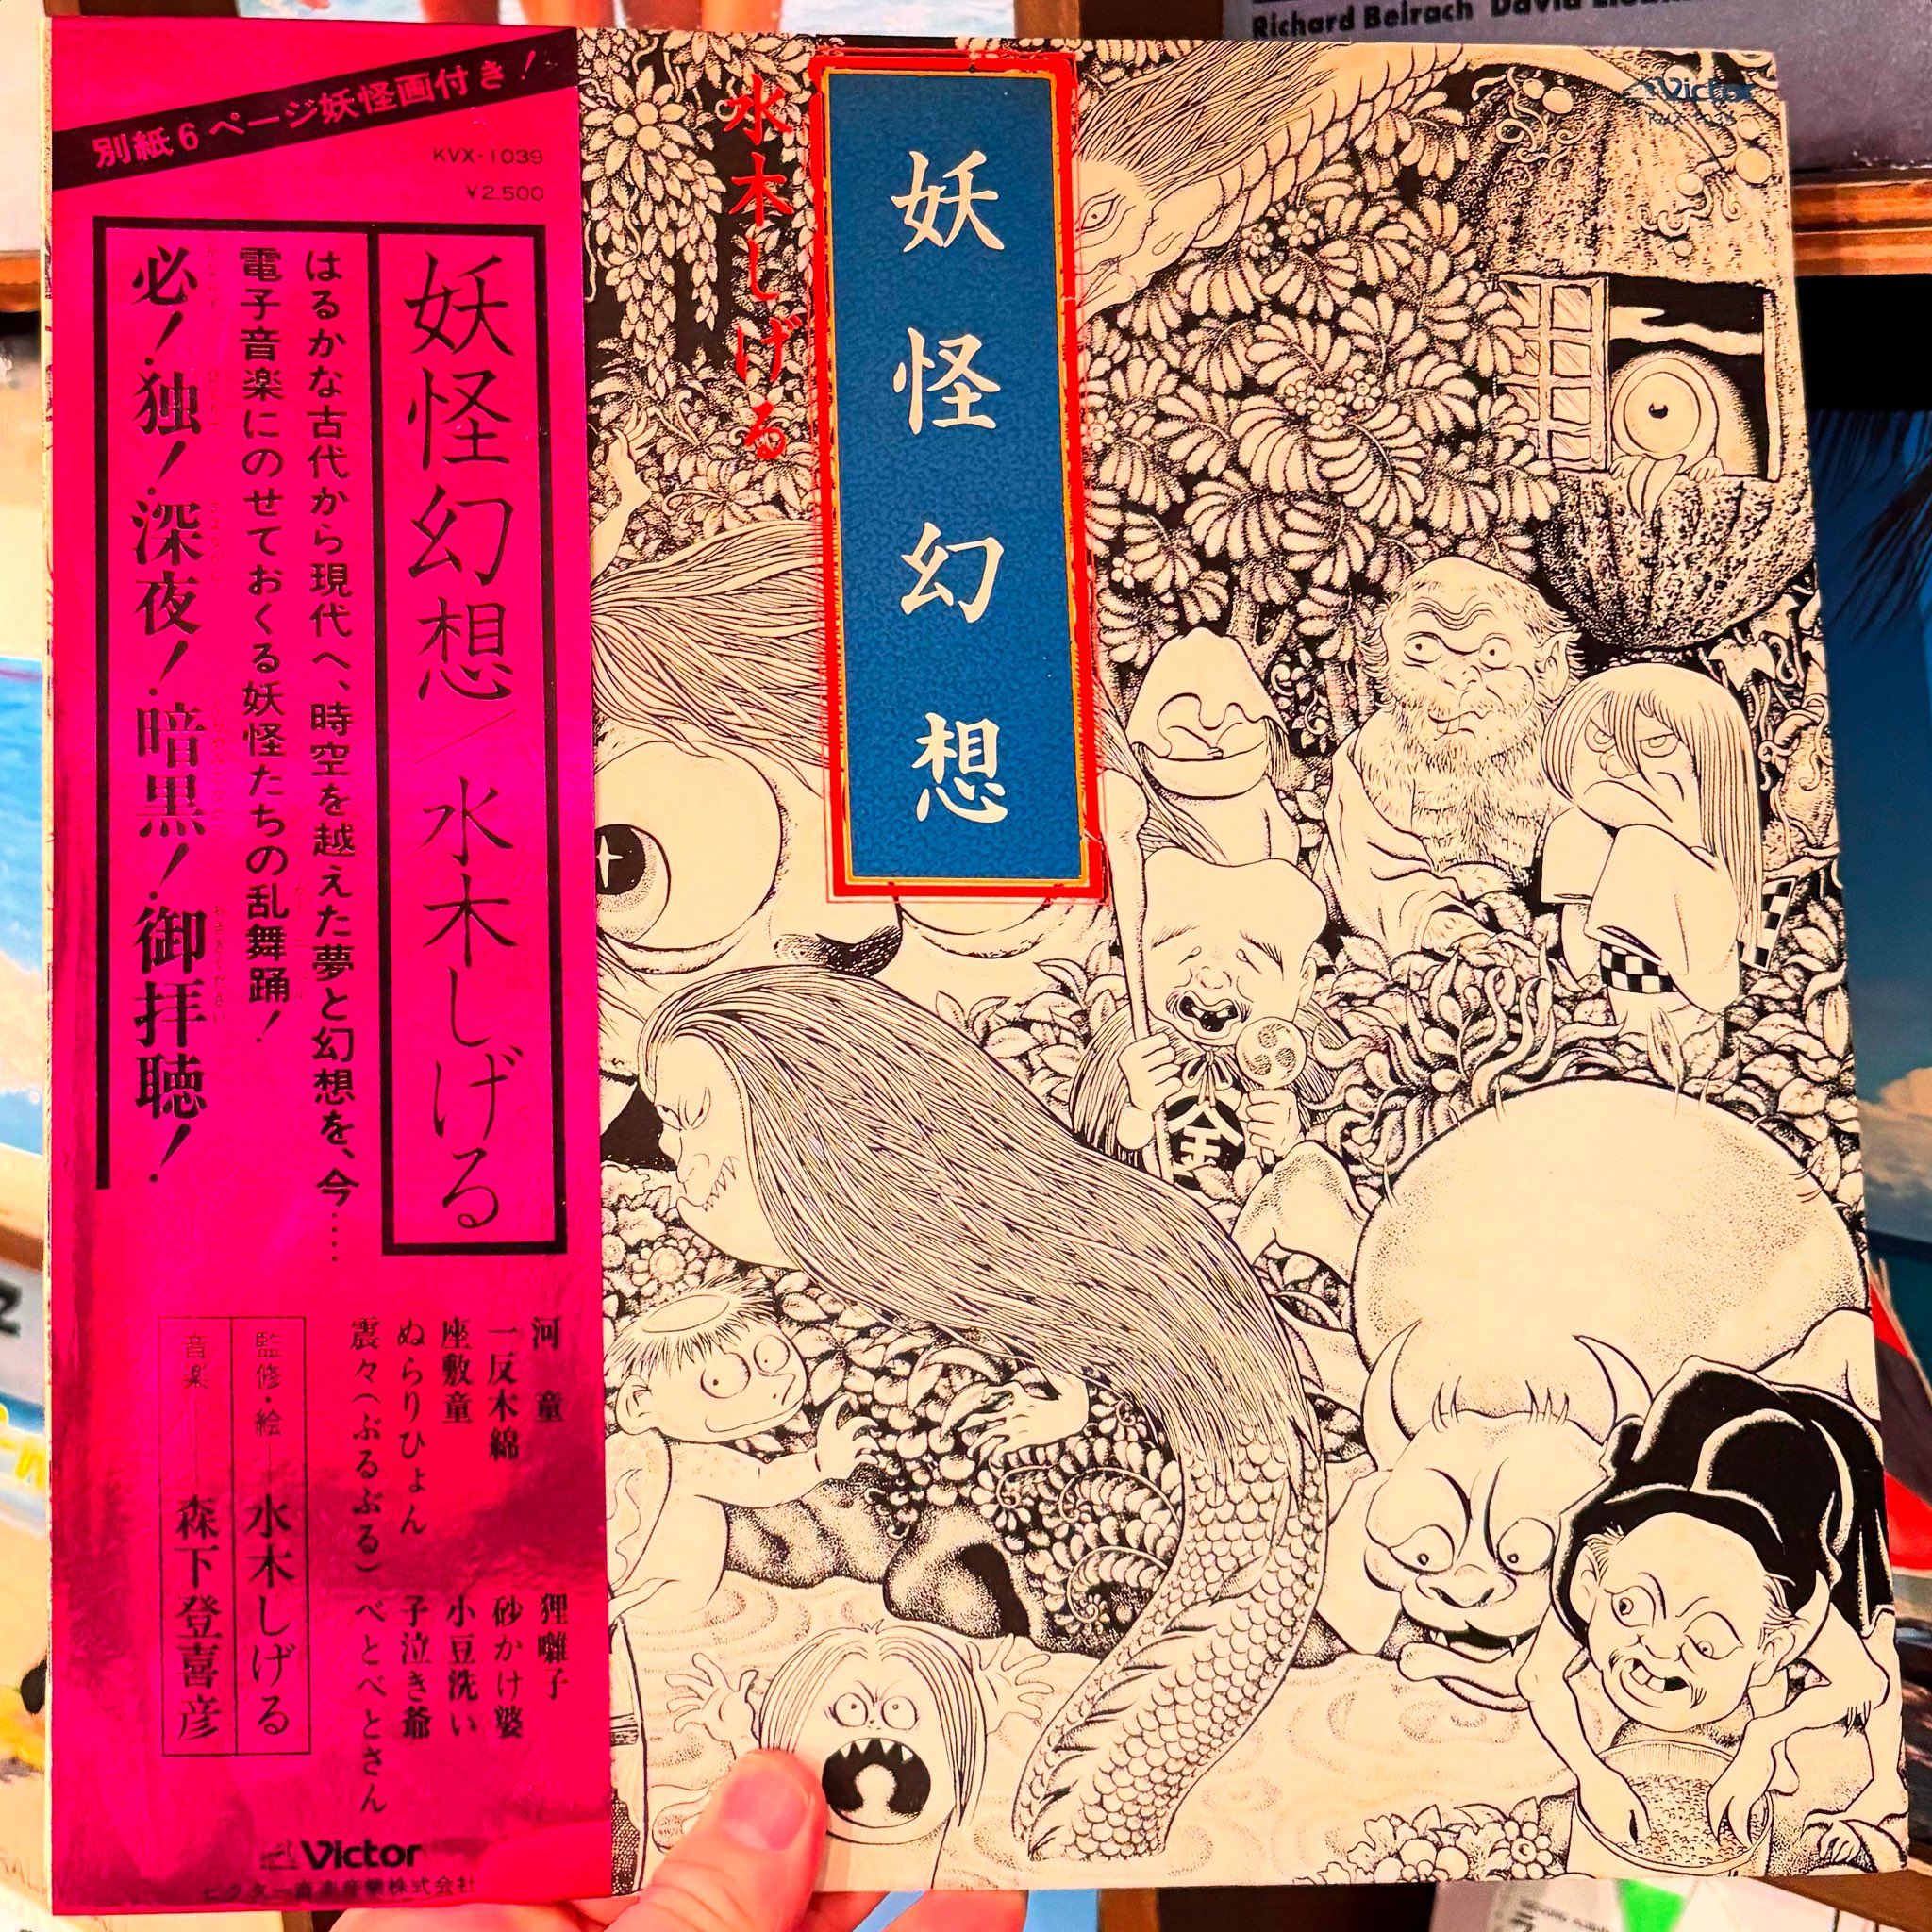 別紙6ページ妖怪画付き!
KVX-1039
¥2,500
妖怪幻想/水木しげる
はるかな古代から現代へ、時空を越えた夢と幻想を、今……
電子音楽にのせておくる妖怪たちの乱舞踊!
必!独!深夜!暗黒!御拝聴!
河童
一反木綿
座敷童
ぬらりひょん
震々(ぶるぶる)
狸囃子
砂かけ婆
小豆洗い
子泣き爺
べとべとさん
監修・絵―水木しげる
音楽―森下登喜彦
Victor
ビクター音楽産業株式会社
水木しげる
妖怪幻想
Victor
金
Richard Beirach David